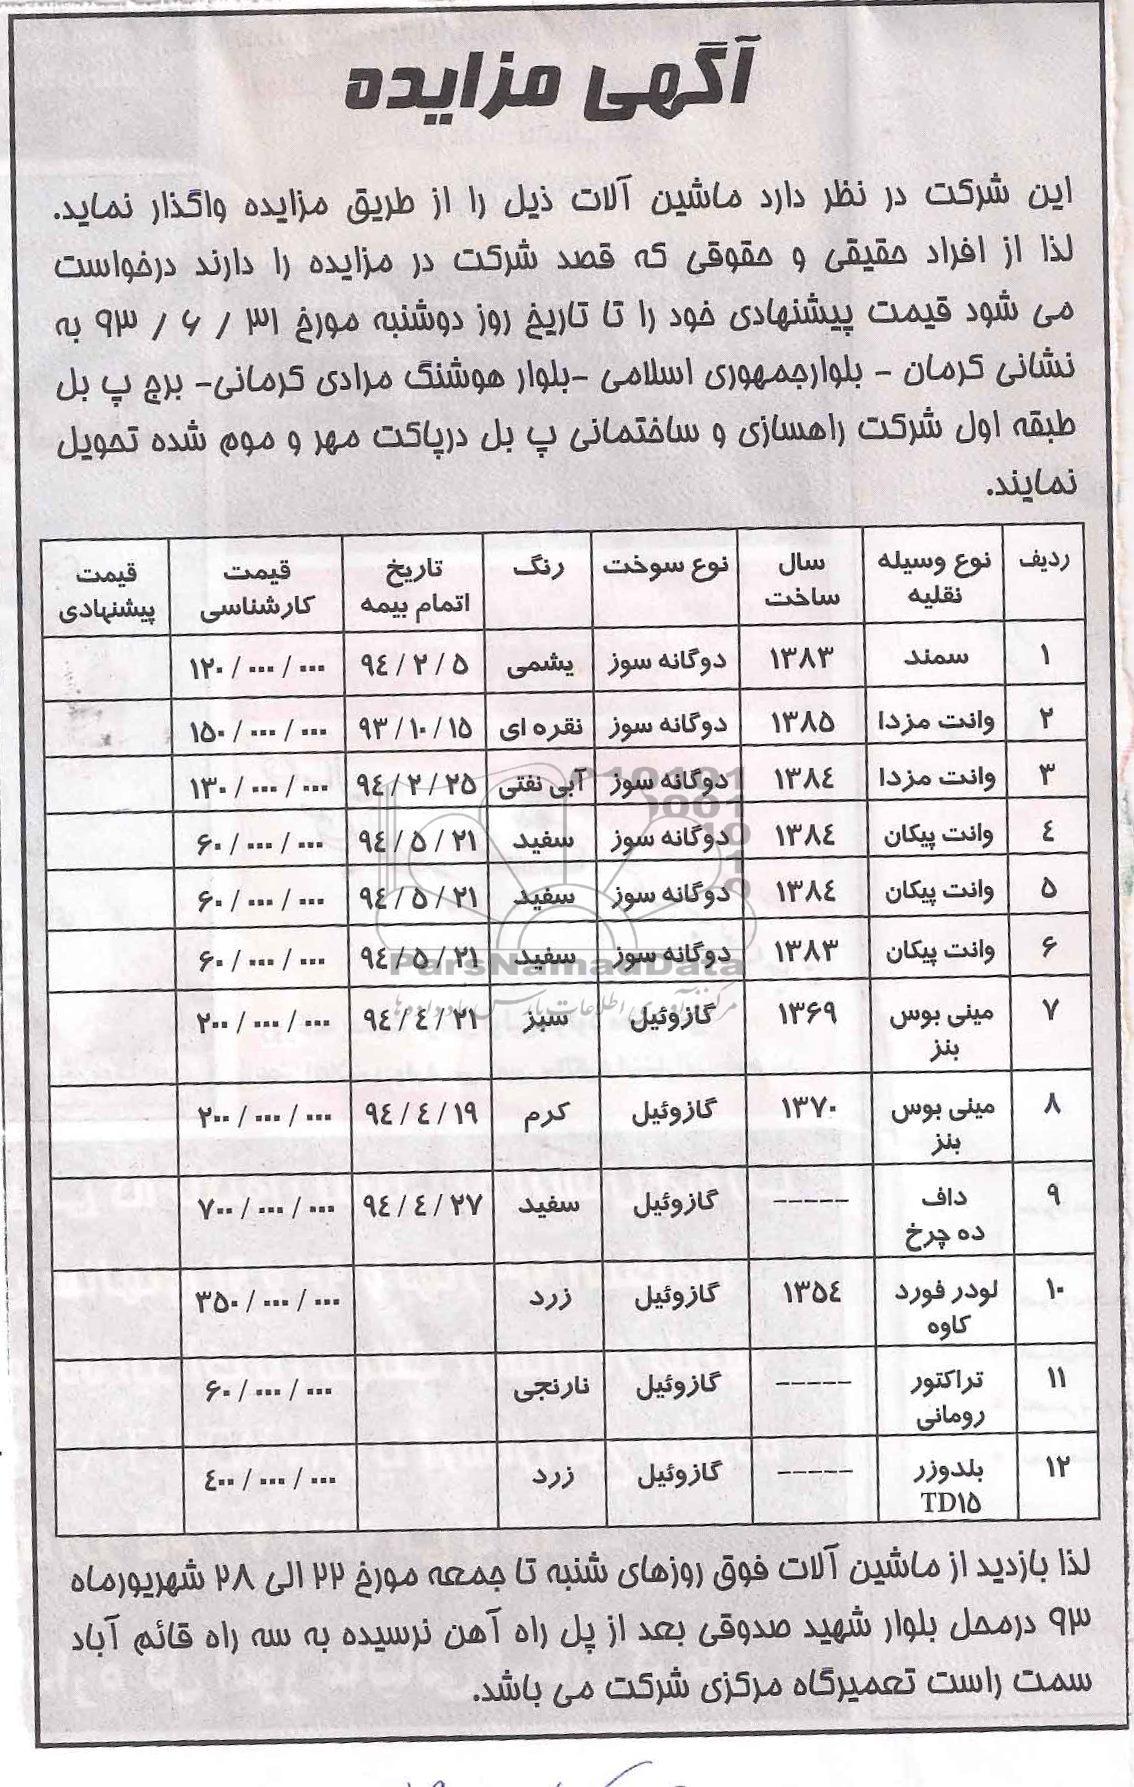 آگهی مزایده
این شرکت در نظر دارد ماشین آلات ذیل را از طریق مزایده واگذار نماید.
لذا از افراد حقیقی و حقوقی که قصد شرکت در مزایده را دارند درخواست
می شود قیمت پیشنهادی خود را تا تاریخ روز دوشنبه مورخ ۳۱ / ۶ / ۹۳ به
نشانی کرمان - بلوارجمهوری اسلامی -بلوار هوشنگ مرادی کرمانی- برج پ بل
طبقه اول شرکت راهسازی و ساختمانی پ بل درپاکت مهر و موم شده تحویل
نمایند.
ردیف نوع وسیله نقلیه سال ساخت نوع سوخت رنگ تاریخ اتمام بیمه قیمت کارشناسی قیمت پیشنهادی
۱ سمند ۱۳۸۳ دوگانه سوز یشمی ۹٤/۲/۵ ۱۲۰/۰۰۰/۰۰۰
۲ وانت مزدا ۱۳۸۵ دوگانه سوز نقره ای ۹۳/۱۰/۱۵ ۱۵۰/۰۰۰/۰۰۰
۳ وانت مزدا ۱۳۸٤ دوگانه سوز آبی نفتی ۹٤/۲/۲۵ ۱۳۰/۰۰۰/۰۰۰
٤ وانت پیکان ۱۳۸٤ دوگانه سوز سفید ۹٤/۵/۲۱ ۶۰/۰۰۰/۰۰۰
۵ وانت پیکان ۱۳۸٤ دوگانه سوز سفید ۹٤/۵/۲۱ ۶۰/۰۰۰/۰۰۰
۶ وانت پیکان ۱۳۸۳ دوگانه سوز سفید ۹٤/۵/۲۱ ۶۰/۰۰۰/۰۰۰
ParsNamadData
۷ مینی بوس بنز ۱۳۶۹ گازوئیل سبز ۹٤/٤/۲۱ ۲۰۰/۰۰۰/۰۰۰
۸ مینی بوس بنز ۱۳۷۰ گازوئیل کرم ۹٤/٤/۱۹ ۲۰۰/۰۰۰/۰۰۰
۹ داف ده چرخ ----- گازوئیل سفید ۹٤/٤/۲۷ ۷۰۰/۰۰۰/۰۰۰
۱۰ لودر فورد کاوه ۱۳۵٤ گازوئیل زرد ۳۵۰/۰۰۰/۰۰۰
۱۱ تراکتور رومانی ----- گازوئیل نارنجی ۶۰/۰۰۰/۰۰۰
۱۲ بلدوزر TD۱۵ ----- گازوئیل زرد ٤۰۰/۰۰۰/۰۰۰
لذا بازدید از ماشین آلات فوق روزهای شنبه تا جمعه مورخ ۲۲ الی ۲۸ شهریورماه
۹۳ درمحل بلوار شهید صدوقی بعد از پل راه آهن نرسیده به سه راه قائم آباد
سمت راست تعمیرگاه مرکزی شرکت می باشد.